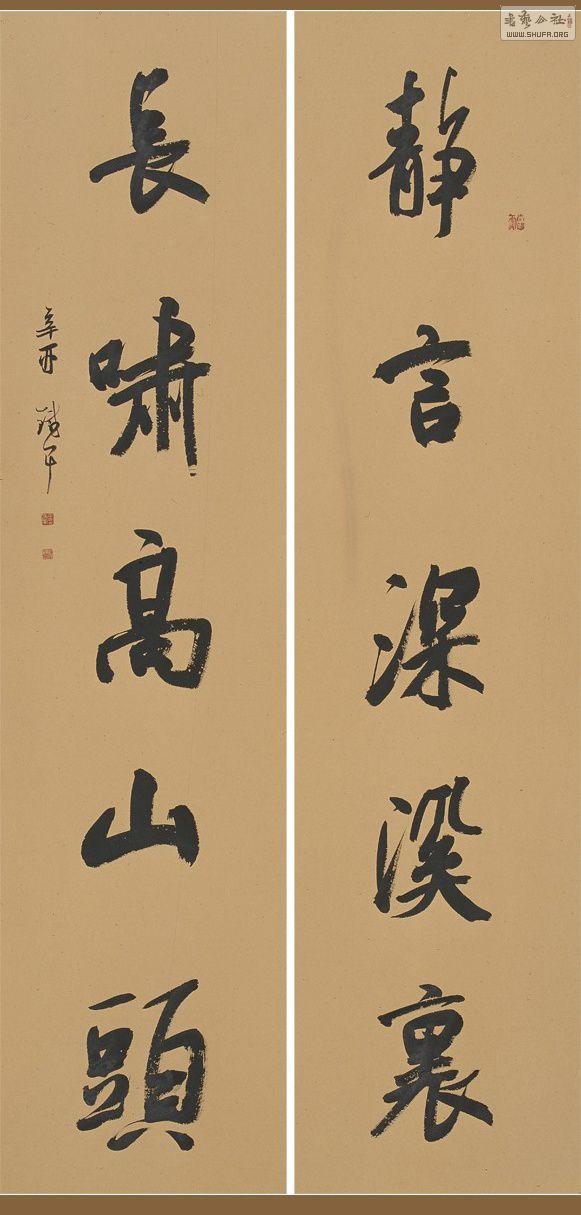 静言深溪裏
長嘯高山頭
辛酉
書艺公社
WWW.SHUFA.ORG